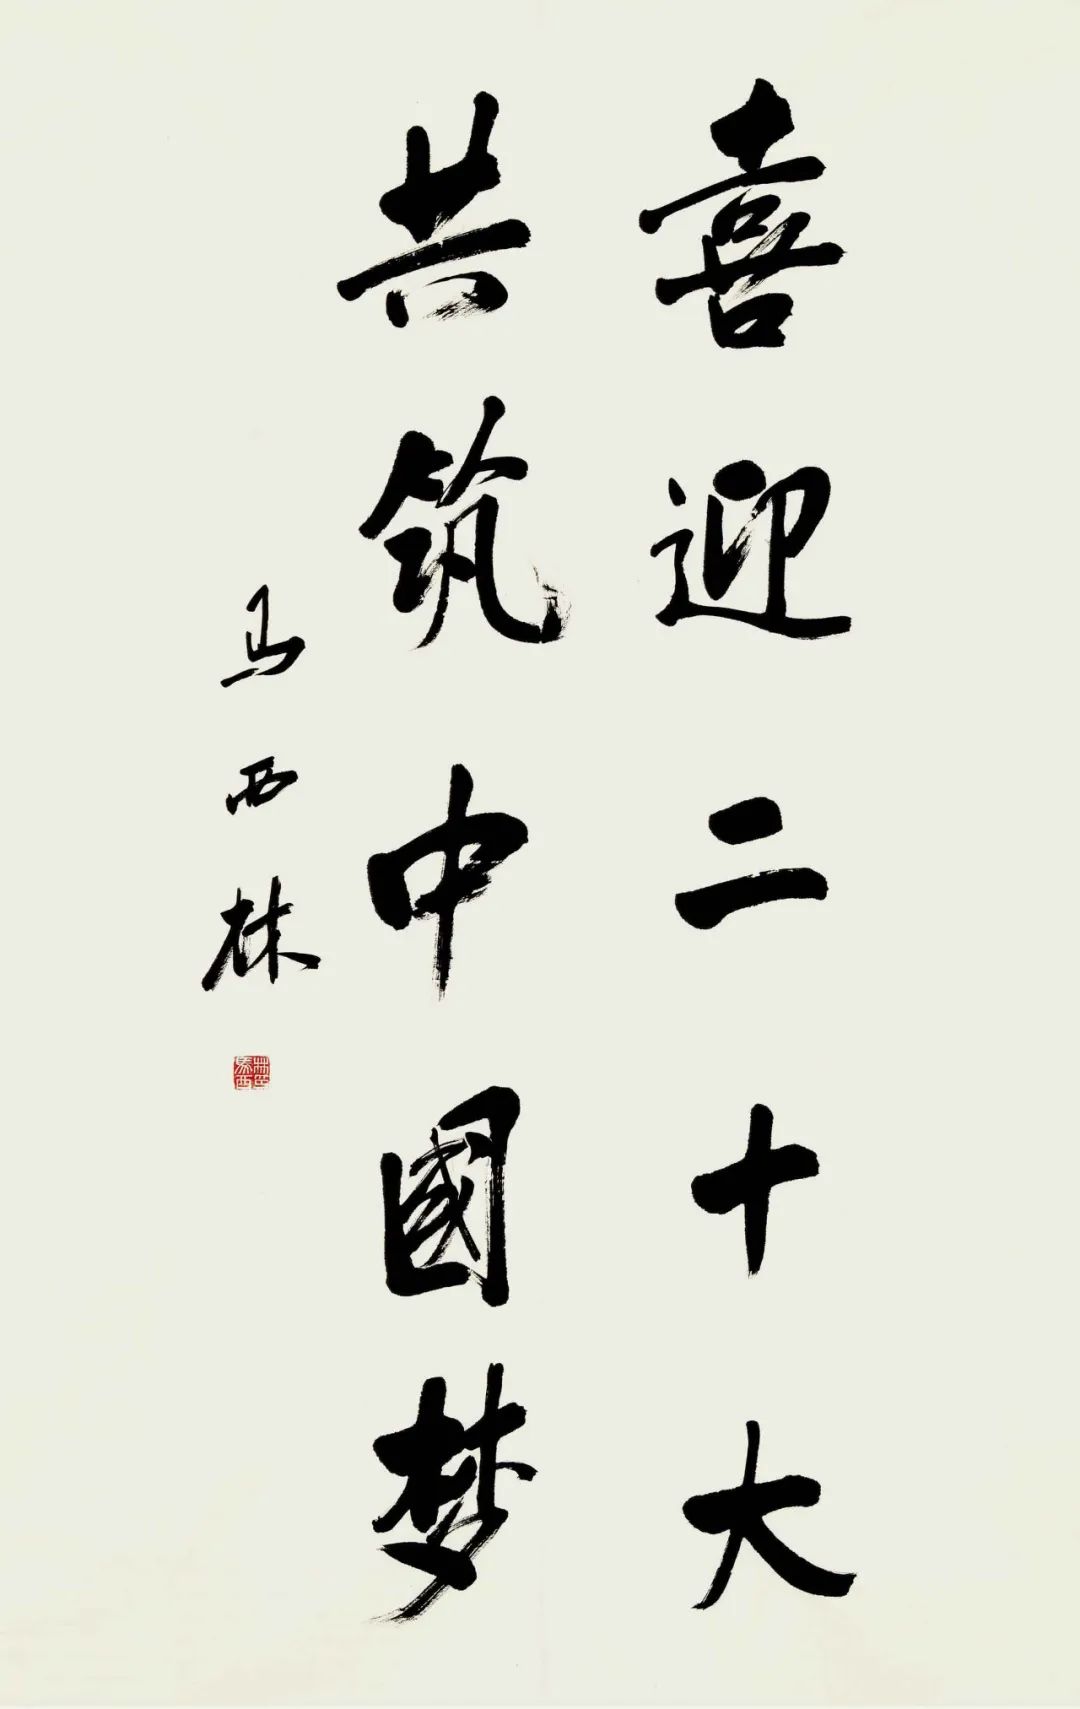 喜迎二十大
共筑中国梦
马西林